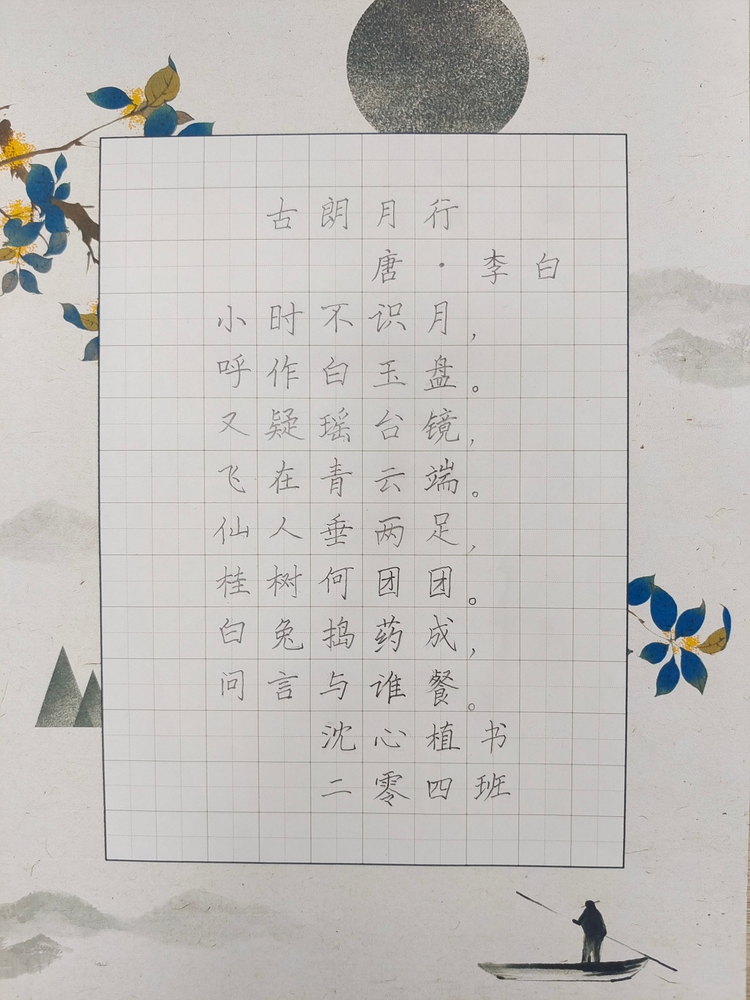 古朗月行
唐·李白
小时不识月，
呼作白玉盘。
又疑瑶台镜，
飞在青云端。
仙人垂两足，
桂树何团团。
白兔捣药成，
问言与谁餐。
沈心植书
二零四班